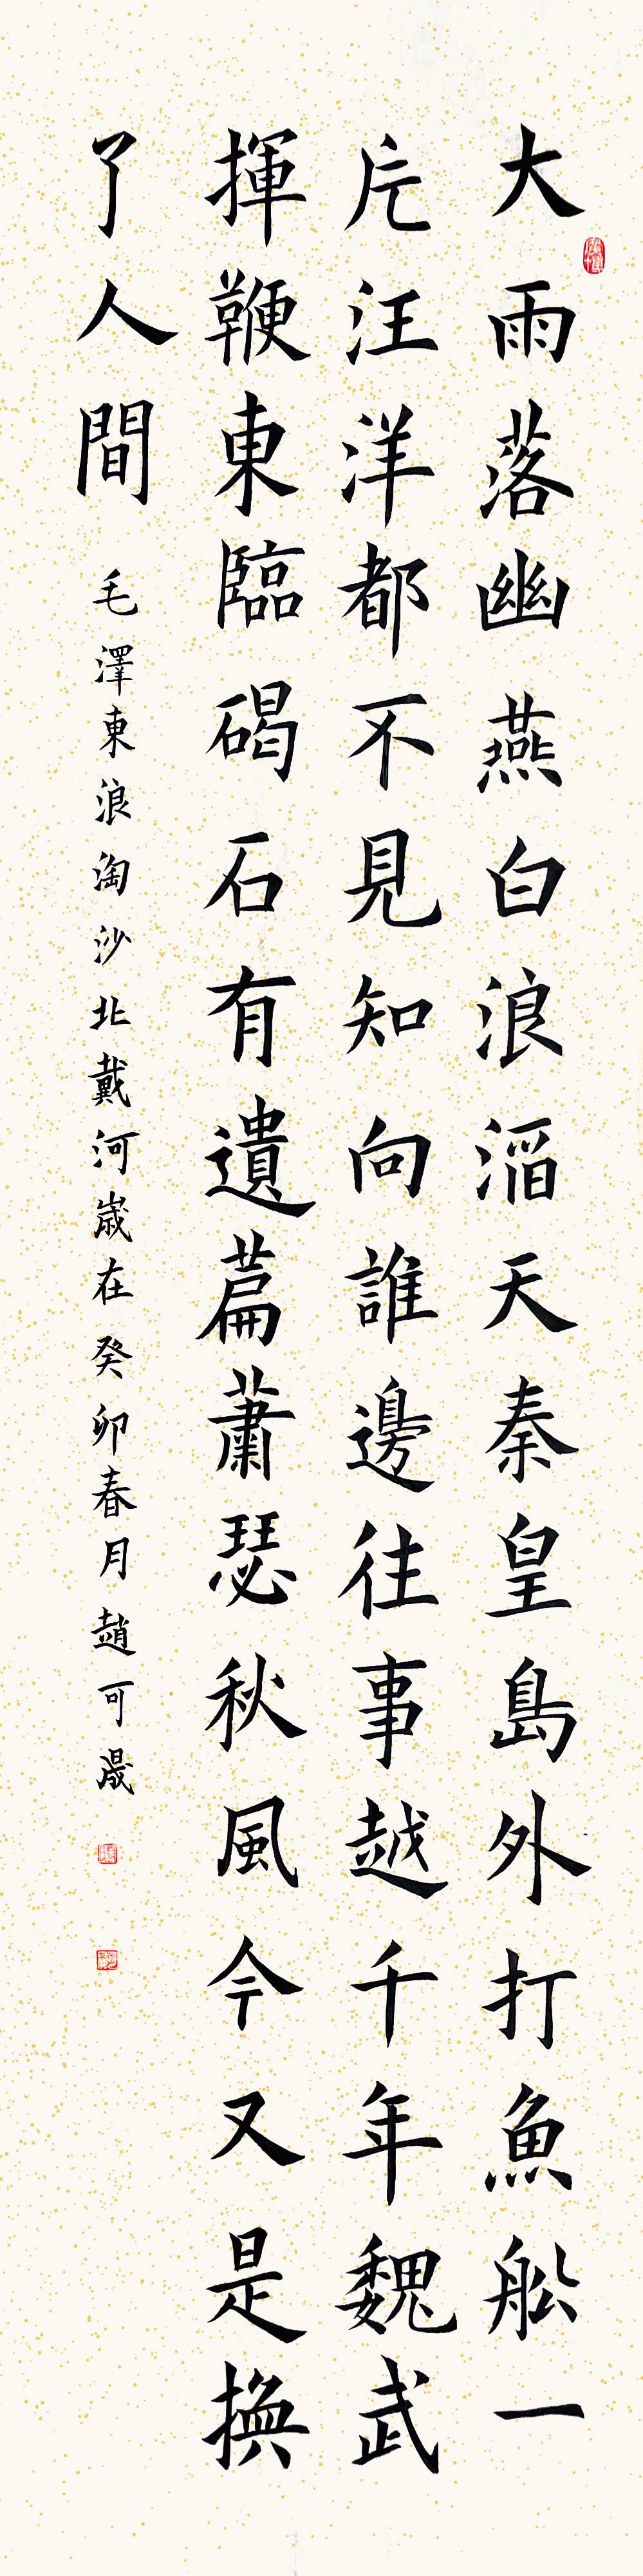 大雨落幽燕白浪滔天秦皇島外打魚舩一
片汪洋都不見知向誰邊往事越千年魏武
揮鞭東臨碣石有遺萹蕭瑟秋風今又是換
了人間
毛澤東浪淘沙北戴河歲在癸卯春月趙可晟